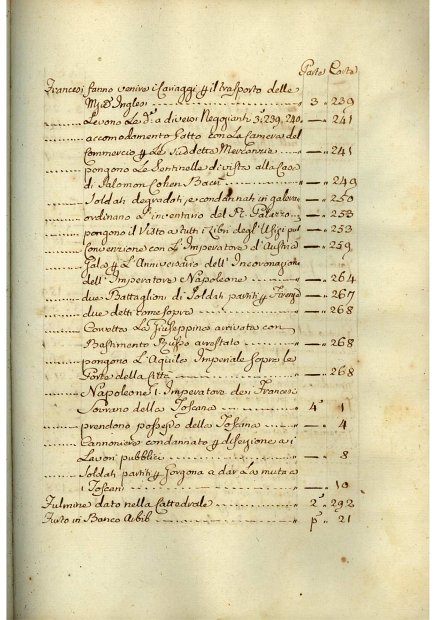 Parte Carta
Francesi fanno venire i Cariaggi p il trasporto delle
Mercⁱ Inglesi 3 „ 239
Levono le dᵉ a diversi Negozianti 3, 239, 240, — „ 241
accomodamento fatto con La Camera del
Commercio p Le Suddette Mercanzie — „ 241
pongono Le Sentinelle di vista alla Casa
di Salomon Cohen Bacri — „ 249
Soldati degradati, e condannati in galera — „ 250
ordinano l'inventario del Rˡ Palazzo — „ 253
pongono il Visto a tutti i Libri degl'Ufizi pub — „ 253
Convenzione con L'Imperatore d'Austria — „ 259
Gala p L'Anniversario dell'Incoronazione
dell'Imperatore Napoleone — „ 264
due Battaglioni di Soldati partiti p Firenze — „ 267
due detti come sopra — „ 268
Corvetta La Giuseppina arrivata con
Bastimento Russo arrestato — „ 268
pongono L'Aquila Imperiale sopra le
Porte della Città — „ 268
Napoleone I. Imperatore dei Francesi
Sovrano della Toscana 4ᵃ 1
prendono possesso della Toscana — „ 4
Cannoniere condannato p diserzione a i
Lavori pubblici — „ 8
Soldati partiti p Gorgona a dar La muta a
i Toscani — „ 10
Fulmine dato nella Cattedrale 2ᵃ „ 292
Furto in Banco Abib pᵃ „ 21